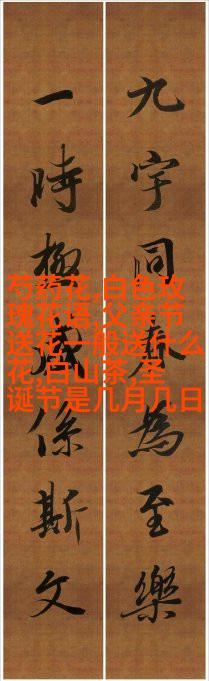 九宇同春為至樂
一時極盛係斯文
芍药花,白色玫
瑰花语,父亲节
送花一般送什么
花,白山茶,圣
诞节是几月几日